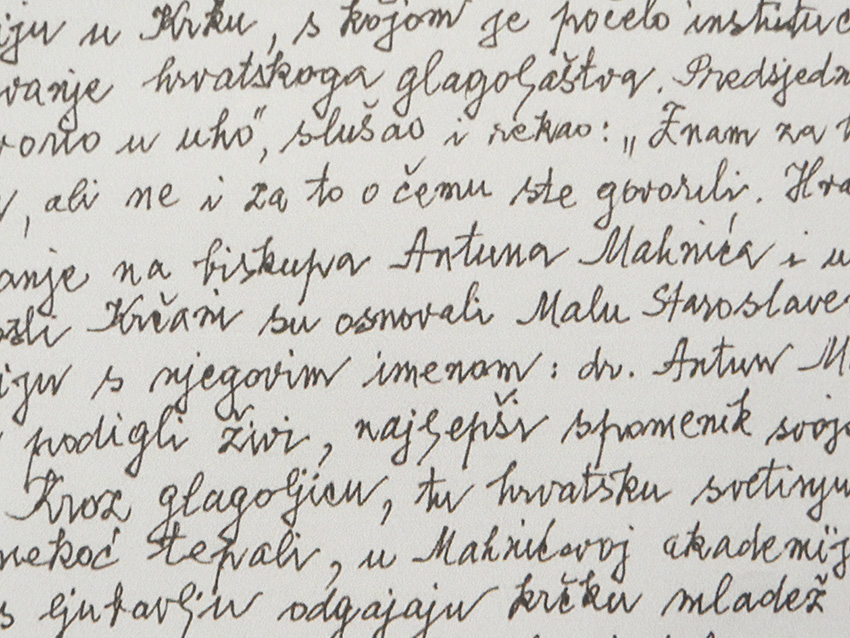 iju u Krku, s kojom je počelo instituc
vanje hrvatskoga glagoljaštva. Predsjedn
vorio u uho", slušao i rekao: „Znam za
, ali ne i za to o čemu ste govorili. Hrv
anje na biskupa Antuna Mahnića i u
ošli Krčani su osnovali Malu Staroslave
iju s njegovim imenom: dr. Antun M
podigli živi, najljepši spomenik svoj
Kroz glagoljicu, tu hrvatsku svetinju
nekoć tepali, u Mahnićevoj akademij
s ljubavlju odgajaju krčku mladež